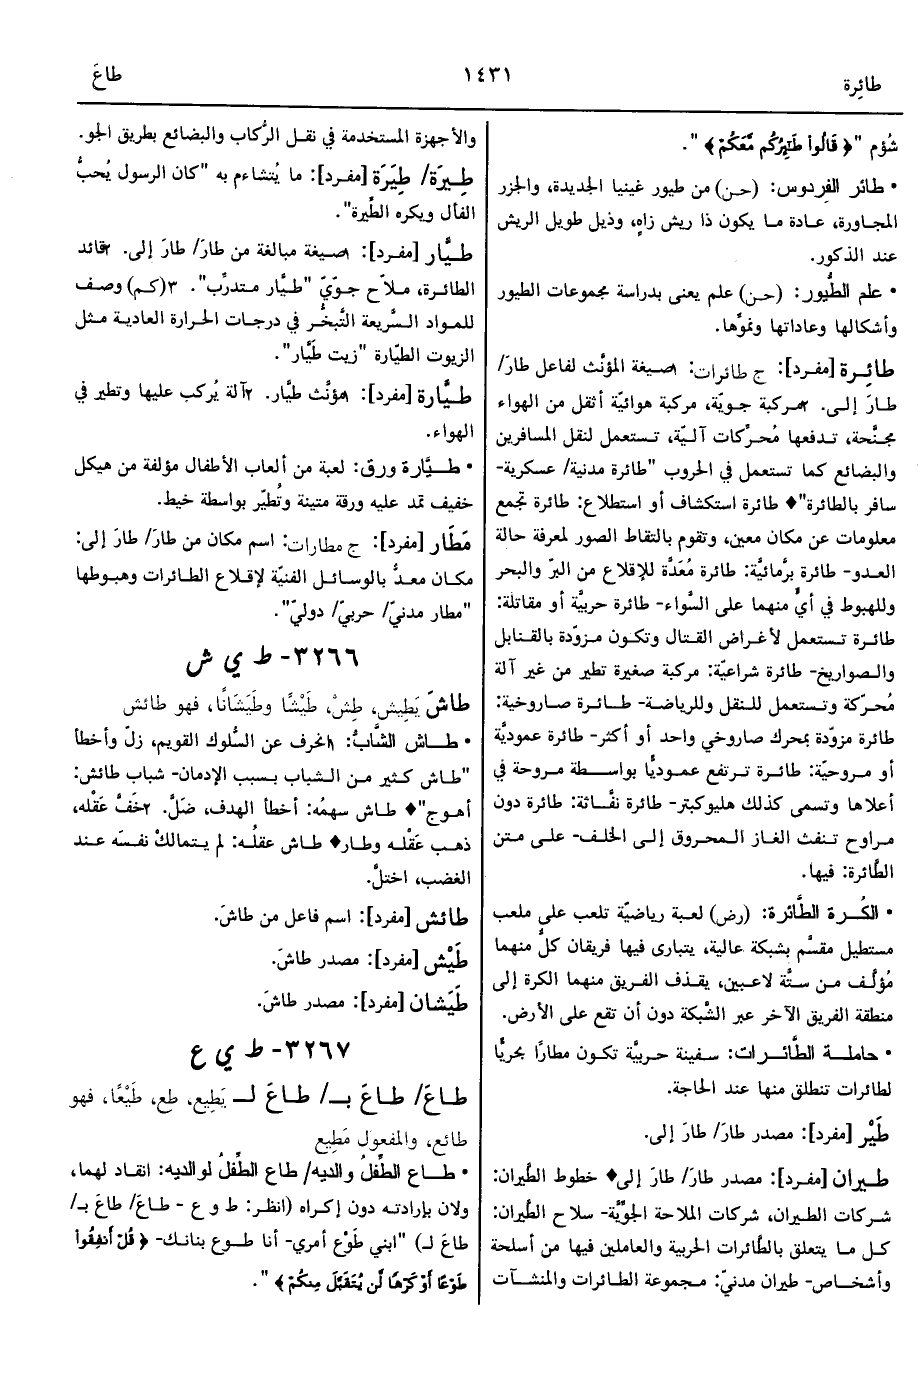 طائِرة
١٤٣١
طاعَ
شُؤم "﴿ قَالُوا طَٰٓئِرُكُم مَّعَكُمْ ﴾".
• طائر الفِردوس: (حن) من طيور غينيا الجديدة، والجزر
المجاورة، عادة ما يكون ذا ريش زاهٍ، وذيل طويل الريش
عند الذكور.
• علم الطُّيور: (حن) علم يعنى بدراسة مجموعات الطيور
وأشكالها وعاداتها ونموَّها.
طائِرة [مفرد]: ج طائرات: ١صيغة المؤنَّث لفاعل طارَ/
طارَ إلى. ٢مركبة جويّة، مركبة هوائيّة أثقل من الهواء
مجنَّحة، تدفعها مُحرِّكات آليّة، تستعمل لنقل المسافرين
والبضائع كما تستعمل في الحروب "طائرة مدنية/ عسكرية-
سافر بالطائرة"♦ طائرة استكشاف أو استطلاع: طائرة تجمع
معلومات عن مكان معين، وتقوم بالتقاط الصور لمعرفة حالة
العدو- طائرة برَّمائيَّة: طائرة مُعَدَّة للإقلاع من البرّ والبحر
وللهبوط في أيٍّ منهما على السَّواء- طائرة حربيَّة أو مقاتلة:
طائرة تستعمل لأغراض القتال وتكون مزوّدة بالقنابل
والصواريخ- طائرة شراعيّة: مركبة صغيرة تطير من غير آلة
مُحرّكة وتستعمل للنقل وللرياضة- طائرة صاروخية:
طائرة مزوّدة بمحرك صاروخي واحد أو أكثر- طائرة عموديَّة
أو مروحيّة: طائرة ترتفع عموديًّا بواسطة مروحة في
أعلاها وتسمى كذلك هليوكبتر- طائرة نفَّاثة: طائرة دون
مراوح تنفث الغاز المحروق إلى الخلف- على متن
الطَّائرة: فيها.
• الكُرة الطَّائرة: (رض) لعبة رياضيّة تلعب على ملعب
مستطيل مقسَّم بشبكة عالية، يتبارى فيها فريقان كلٌّ منهما
مُؤلَّف من ستَّة لاعبين، يقذف الفريق منهما الكرة إلى
منطقة الفريق الآخر عبر الشَّبكة دون أن تقع على الأرض.
• حاملة الطَّائرات: سفينة حربيَّة تكون مطارًا بحريًّا
لطائرات تنطلق منها عند الحاجة.
طَيْر [مفرد]: مصدر طارَ/ طارَ إلى.
طيران [مفرد]: مصدر طارَ/ طارَ إلى♦ خطوط الطَّيران:
شركات الطيران، شركات الملاحة الجوِّيَّة- سلاح الطَّيران:
كل ما يتعلق بالطَّائرات الحربية والعاملين فيها من أسلحة
وأشخاص- طيران مدنيّ: مجموعة الطائرات والمنشآت
والأجهزة المستخدمة في نقل الرُّكاب والبضائع بطريق الجو.
طِيرَة/ طِيَرَة [مفرد]: ما يُتشاءم به "كان الرسول يُحبُّ
الفأل ويكره الطِّيرة".
طيَّار [مفرد]: ١صيغة مبالغة من طارَ/ طارَ إلى. ٢قائد
الطائرة، ملاّح جوّيّ "طيَّار متدرِّب". ٣(كم) وصف
للمواد السَّريعة التَّبخُّر في درجات الحرارة العادية مثل
الزيوت الطيّارة "زيت طَيَّار".
طيَّارة [مفرد]: ١مؤنَّث طيَّار. ٢آلة يُركب عليها وتطير في
الهواء.
• طيَّارة ورق: لعبة من ألعاب الأطفال مؤلفة من هيكل
خفيف تمد عليه ورقة متينة وتُطيّر بواسطة خيط.
مَطَار [مفرد]: ج مطارات: اسم مكان من طارَ/ طارَ إلى:
مكان معدٌّ بالوسائل الفنيّة لإقلاع الطائرات وهبوطها
"مطار مدنيّ/ حربيّ/ دوليّ".
٣٢٦٦- ط ي ش
طاشَ يَطِيش، طِشْ، طَيْشًا وطَيَشَانًا، فهو طائش
• طاش الشَّابُّ: ١انحرف عن السُّلوك القويم، زلّ وأخطأ
"طاش كثير من الشباب بسبب الإدمان- شباب طائش:
أهوج"♦ طاش سهمُه: أخطأ الهدف، ضَلَّ. ٢خَفَّ عَقْله،
ذهب عَقْله وطار♦ طاش عقلُه: لم يتمالكْ نفسَه عند
الغضب، اختلَّ.
طائش [مفرد]: اسم فاعل من طاشَ.
طَيْش [مفرد]: مصدر طاشَ.
طَيَشان [مفرد]: مصدر طاشَ.
٣٢٦٧- ط ي ع
طاعَ/ طاعَ بـ/ طاعَ لـ يَطِيع، طِع، طَيْعًا، فهو
طائع، والمفعول مَطِيع
• طاع الطِّفلُ والديه/ طاع الطّفلُ لوالديه: انقاد لهما،
ولان بإرادته دون إكراه (انظر: ط و ع - طاعَ/ طاعَ بـ/
طاعَ لـ) "ابني طَوْع أمري- أنا طوع بنانك- ﴿ قُلْ أَنفِقُوا
طَوْعًا أَوْ كَرْهًا لَّن يُتَقَبَّلَ مِنكُمْ ﴾".